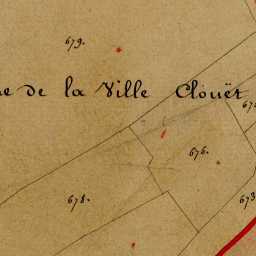 679.
de la Ville Clouët
676.
678.
673